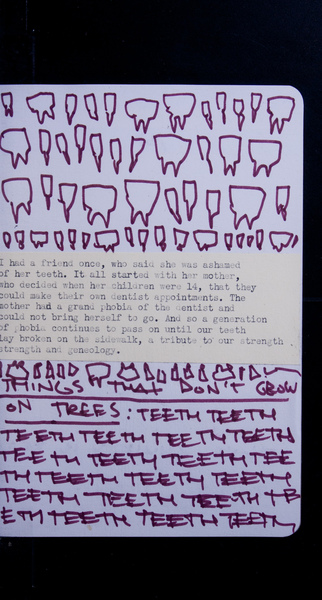 I had a friend once, who said she was ashamed
of her teeth. It all started with her mother,
who decided when her children were 14, that they
could make their own dentist appointments. The
mother had a grand phobia of the dentist and
could not bring herself to go. And so a generation
of phobia continues to pass on until our teeth
lay broken on the sidewalk, a tribute to our strength
strength and geneology.
THINGS THAT DON'T GROW
ON TREES: TEETH TEETH
TEETH TEETH TEETH TEETH
TEETH TEETH TEETH TEE
TH TEETH TEETH TEETH
TEETH TEETH TEETH TE
ETH TEETH TEETH TEETH